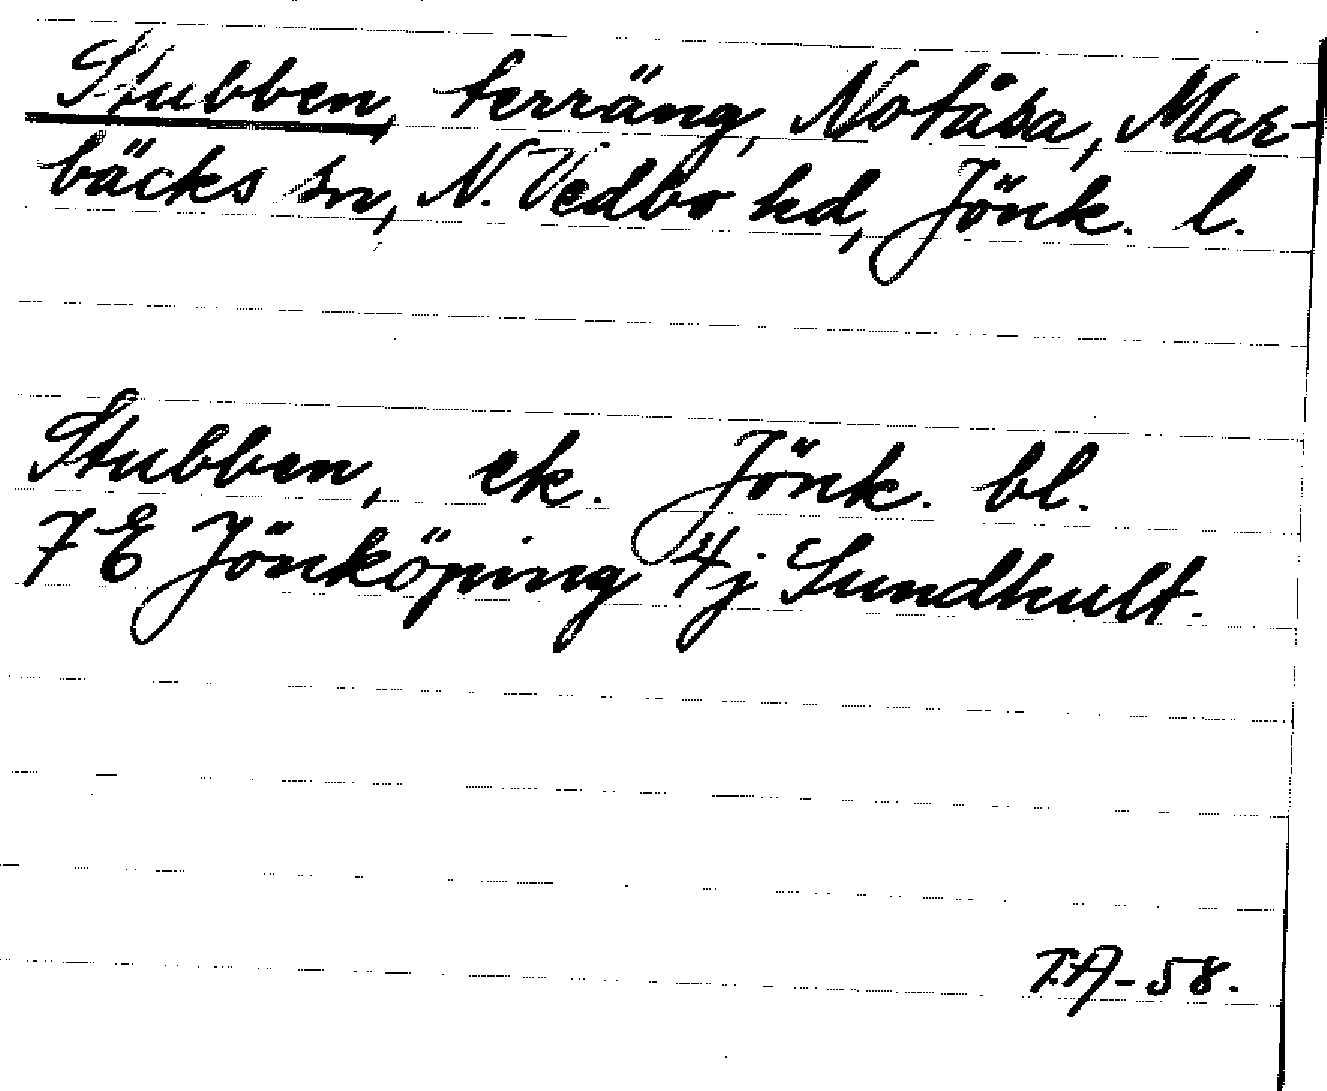 Stubben, terräng, Notåsa, Mar-
bäcks sn, N. Vedbo hd, Jönk. l.
Stubben, ek. Jönk. bl.
7E Jönköping 4j Sundhult.
T.A-58.